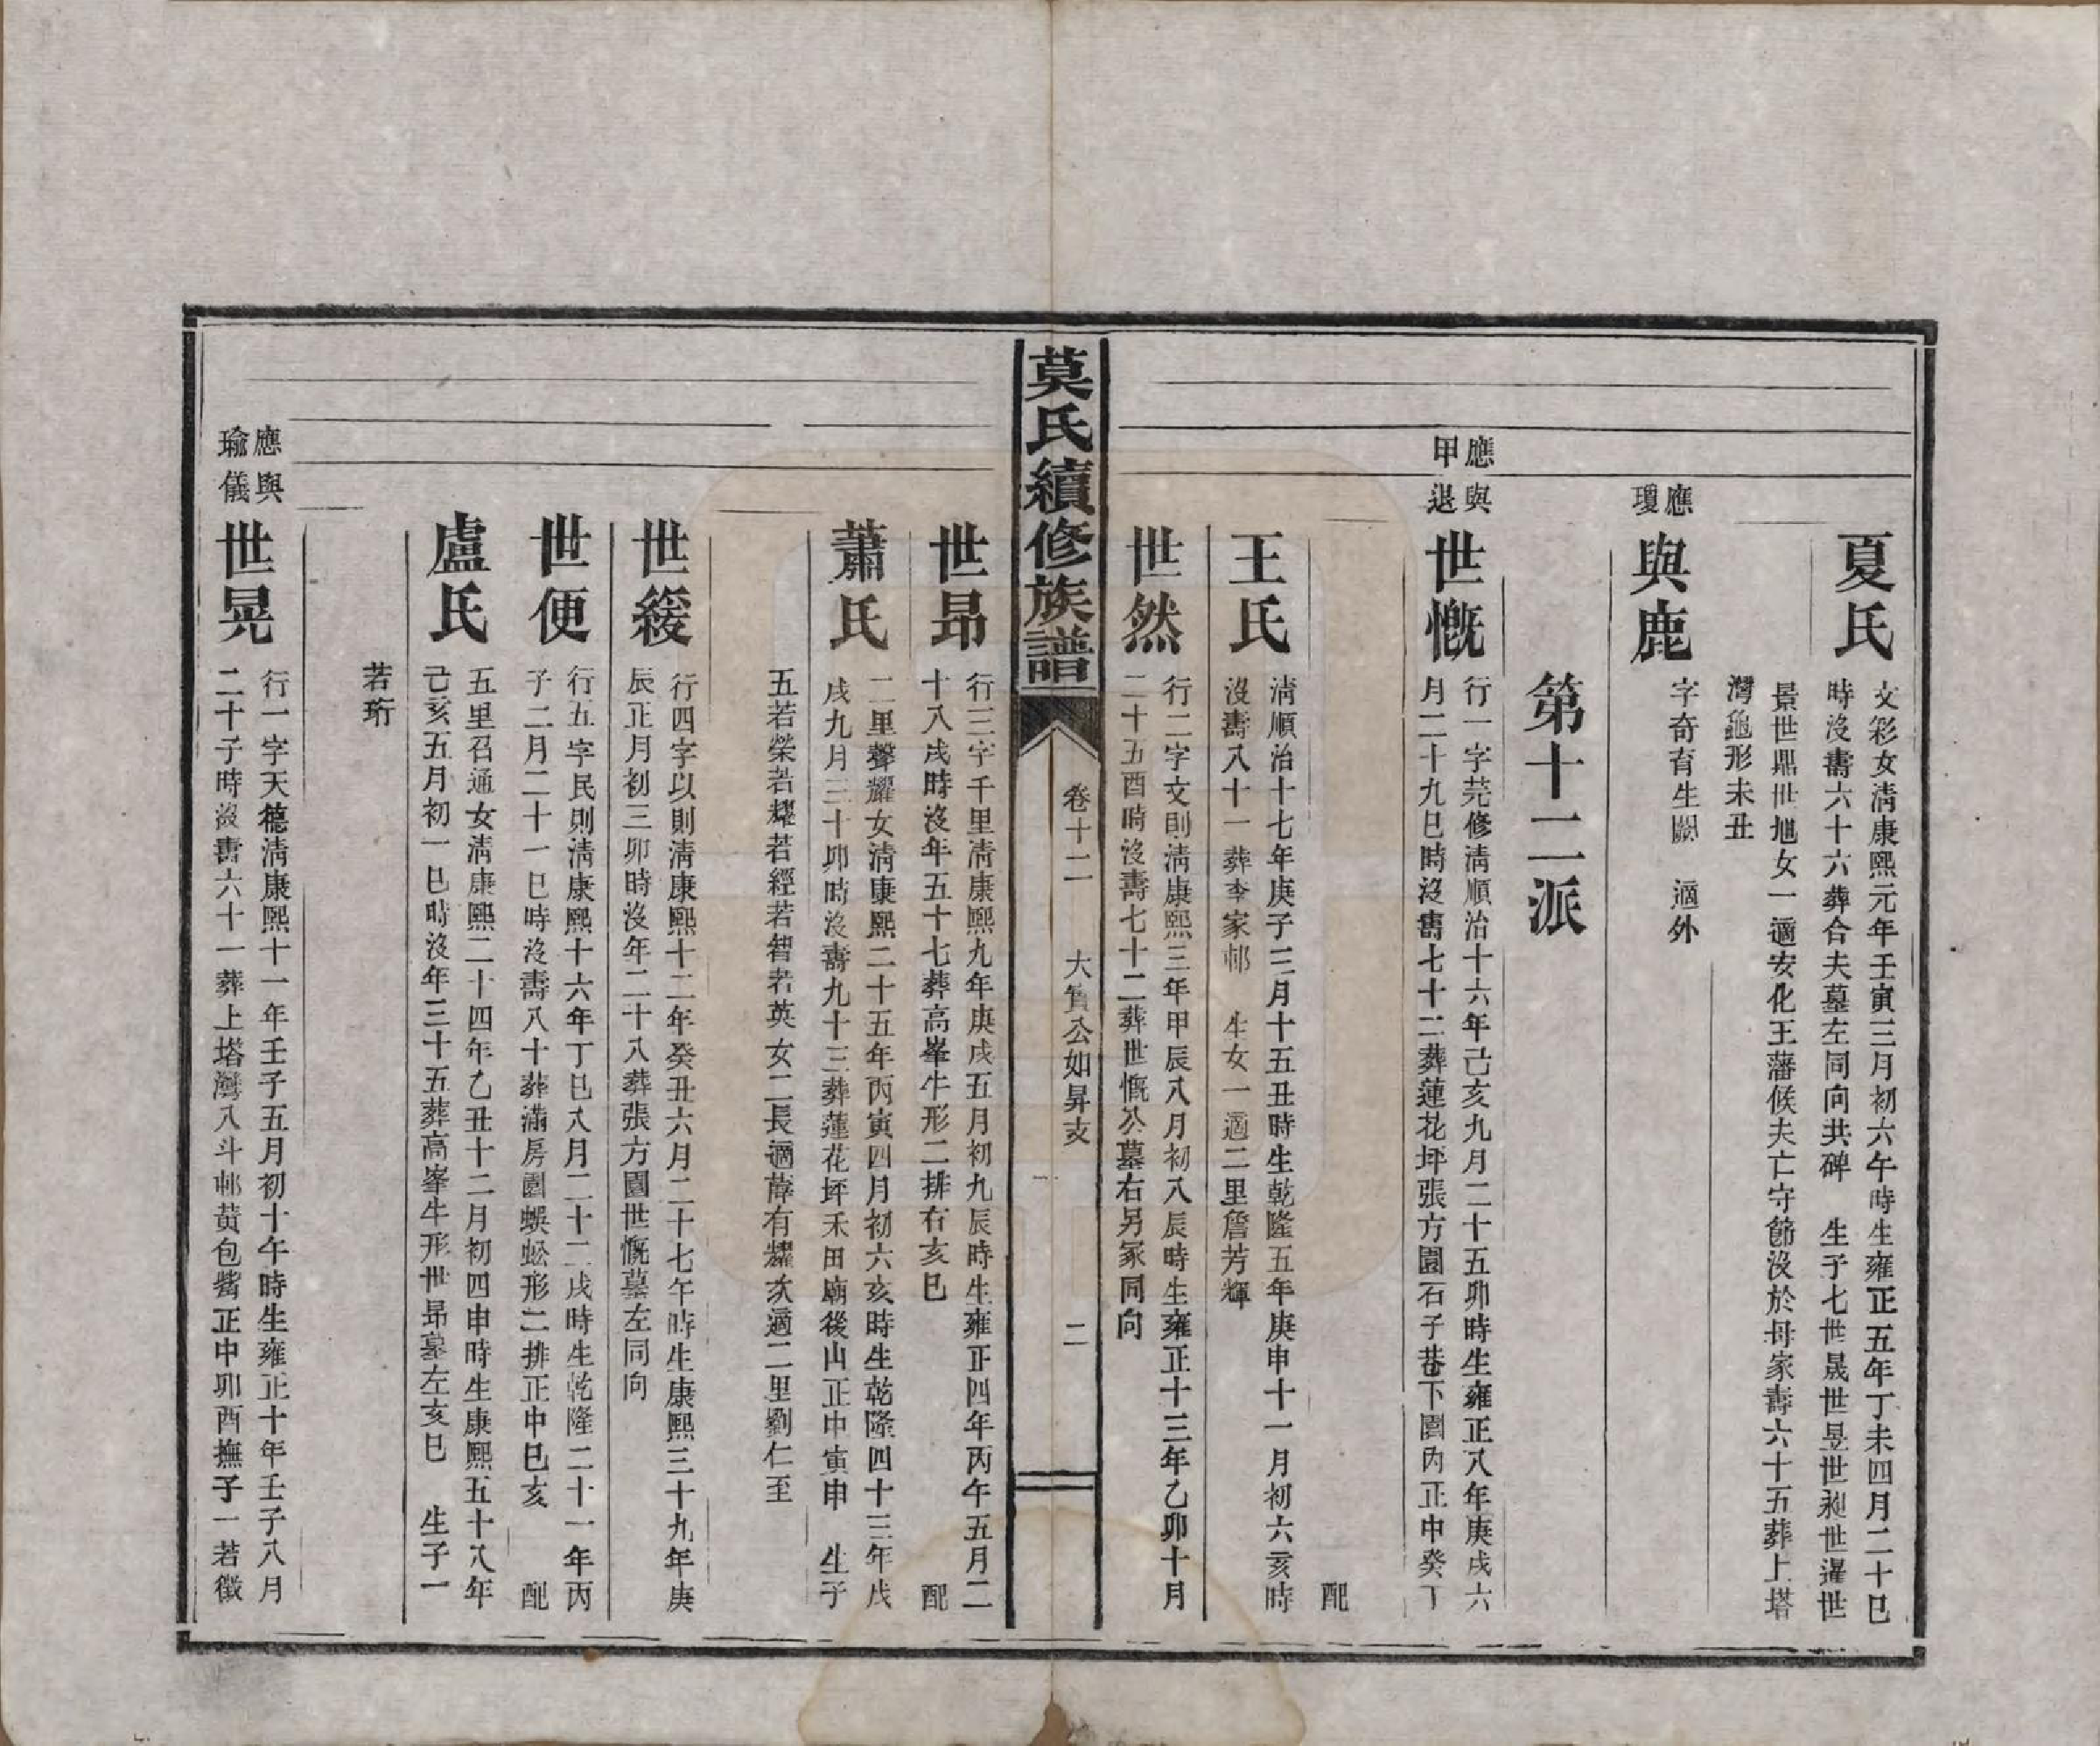 夏氏
文彩女清康熙元年壬寅三月初六午時生雍正五年丁未四月二十巳
時沒壽六十六葬合夫墓左同向共碑　生子七世晟世昱世昶世暹世
景世鼎世旭女一適安化王藩候夫亡守節沒於母家壽六十五葬上塔
灣龜形未丑
應瓊
與鹿
字奇育生闕　適外
第十二派
應甲
與退
世慨
行一字芫修清順治十六年己亥九月二十五卯時生雍正八年庚戌六
月二十九巳時沒壽七十二葬蓮花坪張方園石子巷下園內正中癸丁
配
王氏
清順治十七年庚子三月十五丑時生乾隆五年庚申十一月初六亥時
沒壽八十一葬李家邨　生女一適二里詹芳輝
世然
行二字文則清康熙三年甲辰八月初八辰時生雍正十三年乙卯十月
二十五酉時沒壽七十二葬世慨公墓右另冢同向
莫氏續修族譜
卷十二
大賓公如昇支
二
世昂
行三字千里清康熙九年庚戌五月初九辰時生雍正四年丙午五月二
十八戌時沒年五十七葬高峯牛形二排右亥巳　配
蕭氏
二里聲耀女清康熙二十五年丙寅四月初六亥時生乾隆四十三年戊
戌九月三十卯時沒壽九十三葬蓮花坪禾田廟後山正中寅申　生子
五若榮若耀若經若智若英女二長適薛有耀次適二里劉仁至
世緩
行四字以則清康熙十二年癸丑六月二十七午時生康熙三十九年庚
辰正月初三卯時沒年二十八葬張方園世慨墓左同向
世便
行五字民則清康熙十六年丁巳八月二十二戌時生乾隆二十一年丙
子二月二十一巳時沒壽八十葬滿房園蜈蚣形二排正中巳亥　配
盧氏
五里召通女清康熙二十四年乙丑十二月初四申時生康熙五十八年
己亥五月初一巳時沒年三十五葬高峯牛形世昂墓左亥巳　生子一
若珩
應瑜
與儀
世晃
行一字天德清康熙十一年壬子五月初十午時生雍正十年壬子八月
二十子時沒壽六十一葬上塔灣八斗邨黃包嘴正中卯酉撫子一若徽